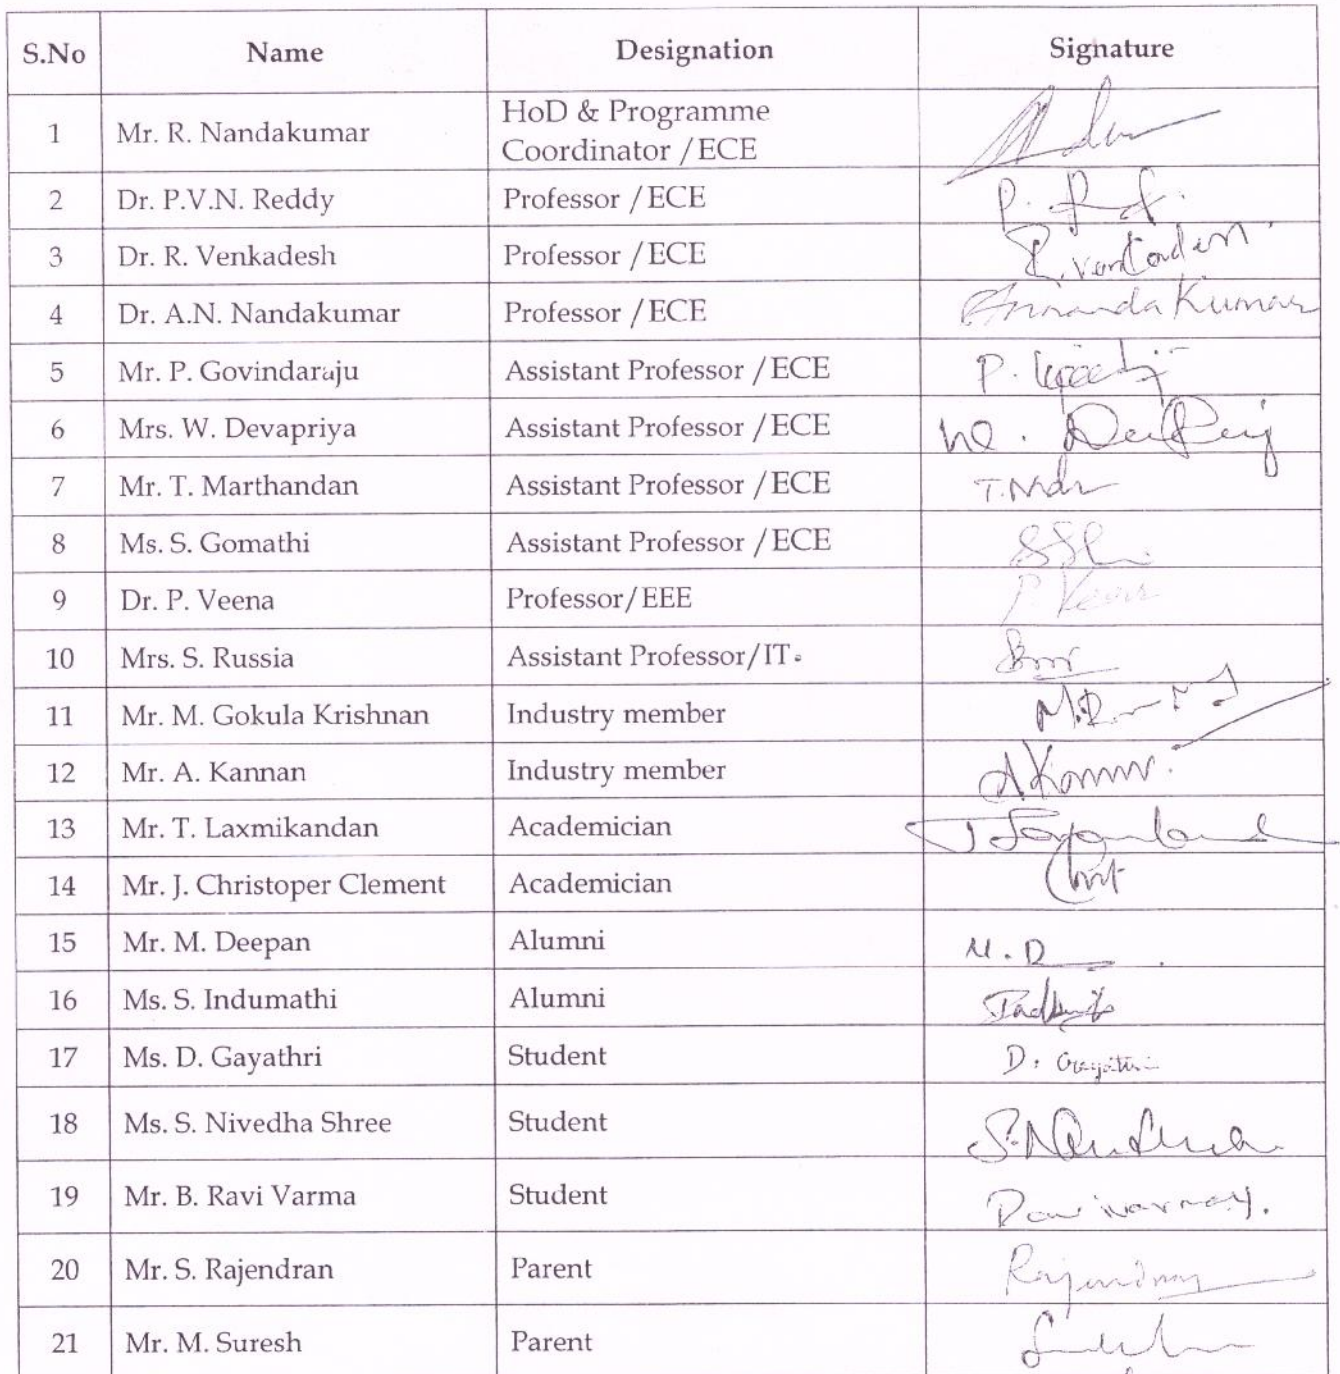 S.No Name Designation Signature
1 Mr. R. Nandakumar HoD & Programme
Coordinator / ECE
2 Dr. P.V.N. Reddy Professor / ECE
3 Dr. R. Venkadesh Professor / ECE R. Venkadesh
4 Dr. A.N. Nandakumar Professor / ECE
5 Mr. P. Govindaraju Assistant Professor / ECE P.
6 Mrs. W. Devapriya Assistant Professor / ECE
7 Mr. T. Marthandan Assistant Professor / ECE
8 Ms. S. Gomathi Assistant Professor / ECE
9 Dr. P. Veena Professor/EEE P. Veena
10 Mrs. S. Russia Assistant Professor/IT.
11 Mr. M. Gokula Krishnan Industry member
12 Mr. A. Kannan Industry member
13 Mr. T. Laxmikandan Academician
14 Mr. J. Christoper Clement Academician
15 Mr. M. Deepan Alumni M. D
16 Ms. S. Indumathi Alumni
17 Ms. D. Gayathri Student D. Gayathri
18 Ms. S. Nivedha Shree Student
19 Mr. B. Ravi Varma Student
20 Mr. S. Rajendran Parent Rajendran
21 Mr. M. Suresh Parent